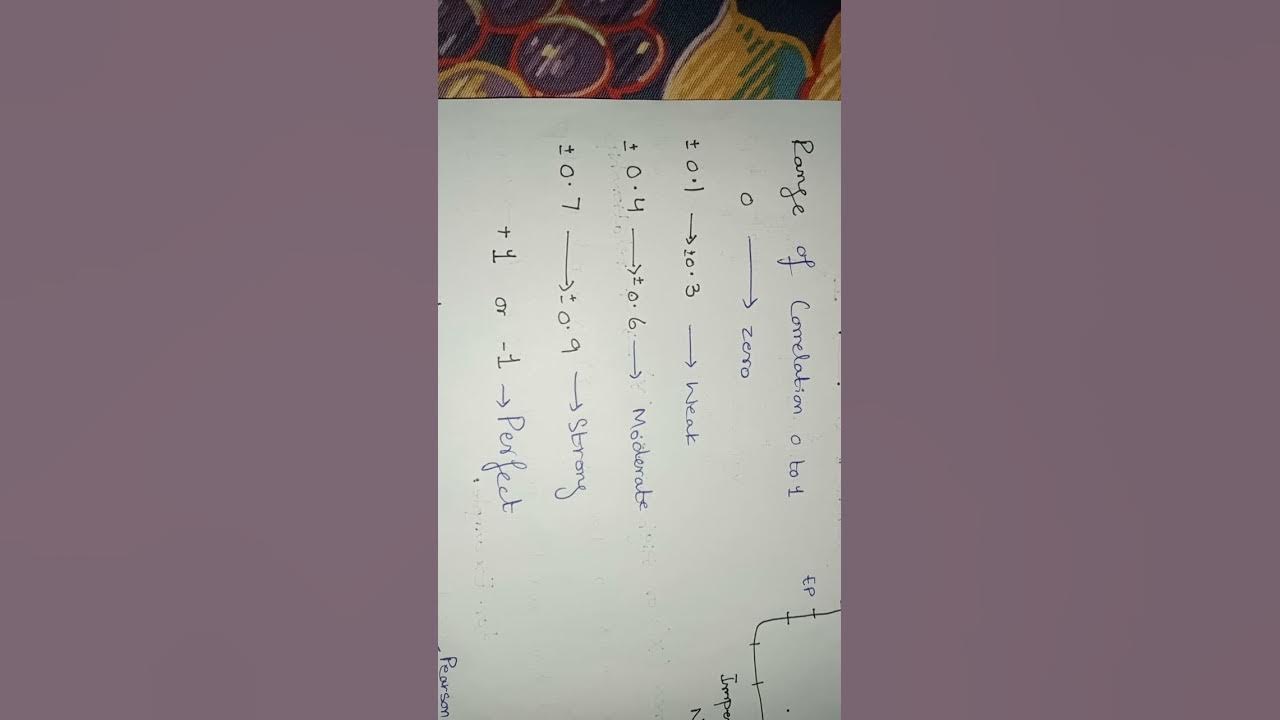 Range of Correlation 0 to 1
0 → zero
± 0.1 → ±0.3 → Weak
± 0.4 → ± 0.6 → Moderate
± 0.7 → ± 0.9 → Strong
+1 or -1 → Perfect
Pearson